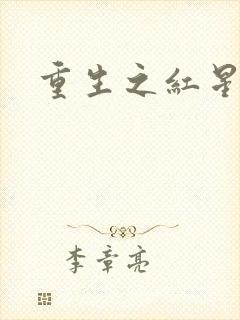 重生之紅星
李章亮